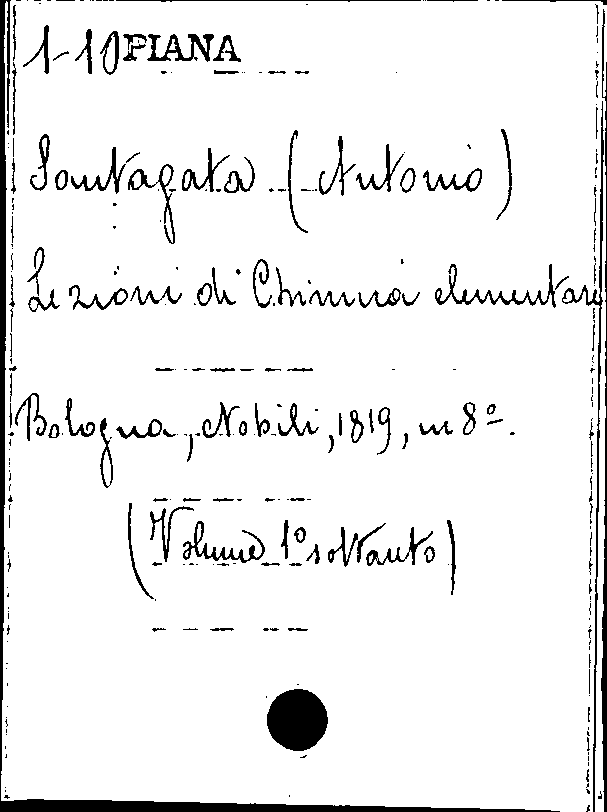 1-10 PIANA
Santagata (Antonio)
Lezioni di Chimica elementare
Bologna, Nobili, 1819, in 8º.
(Volume 1º soltanto)